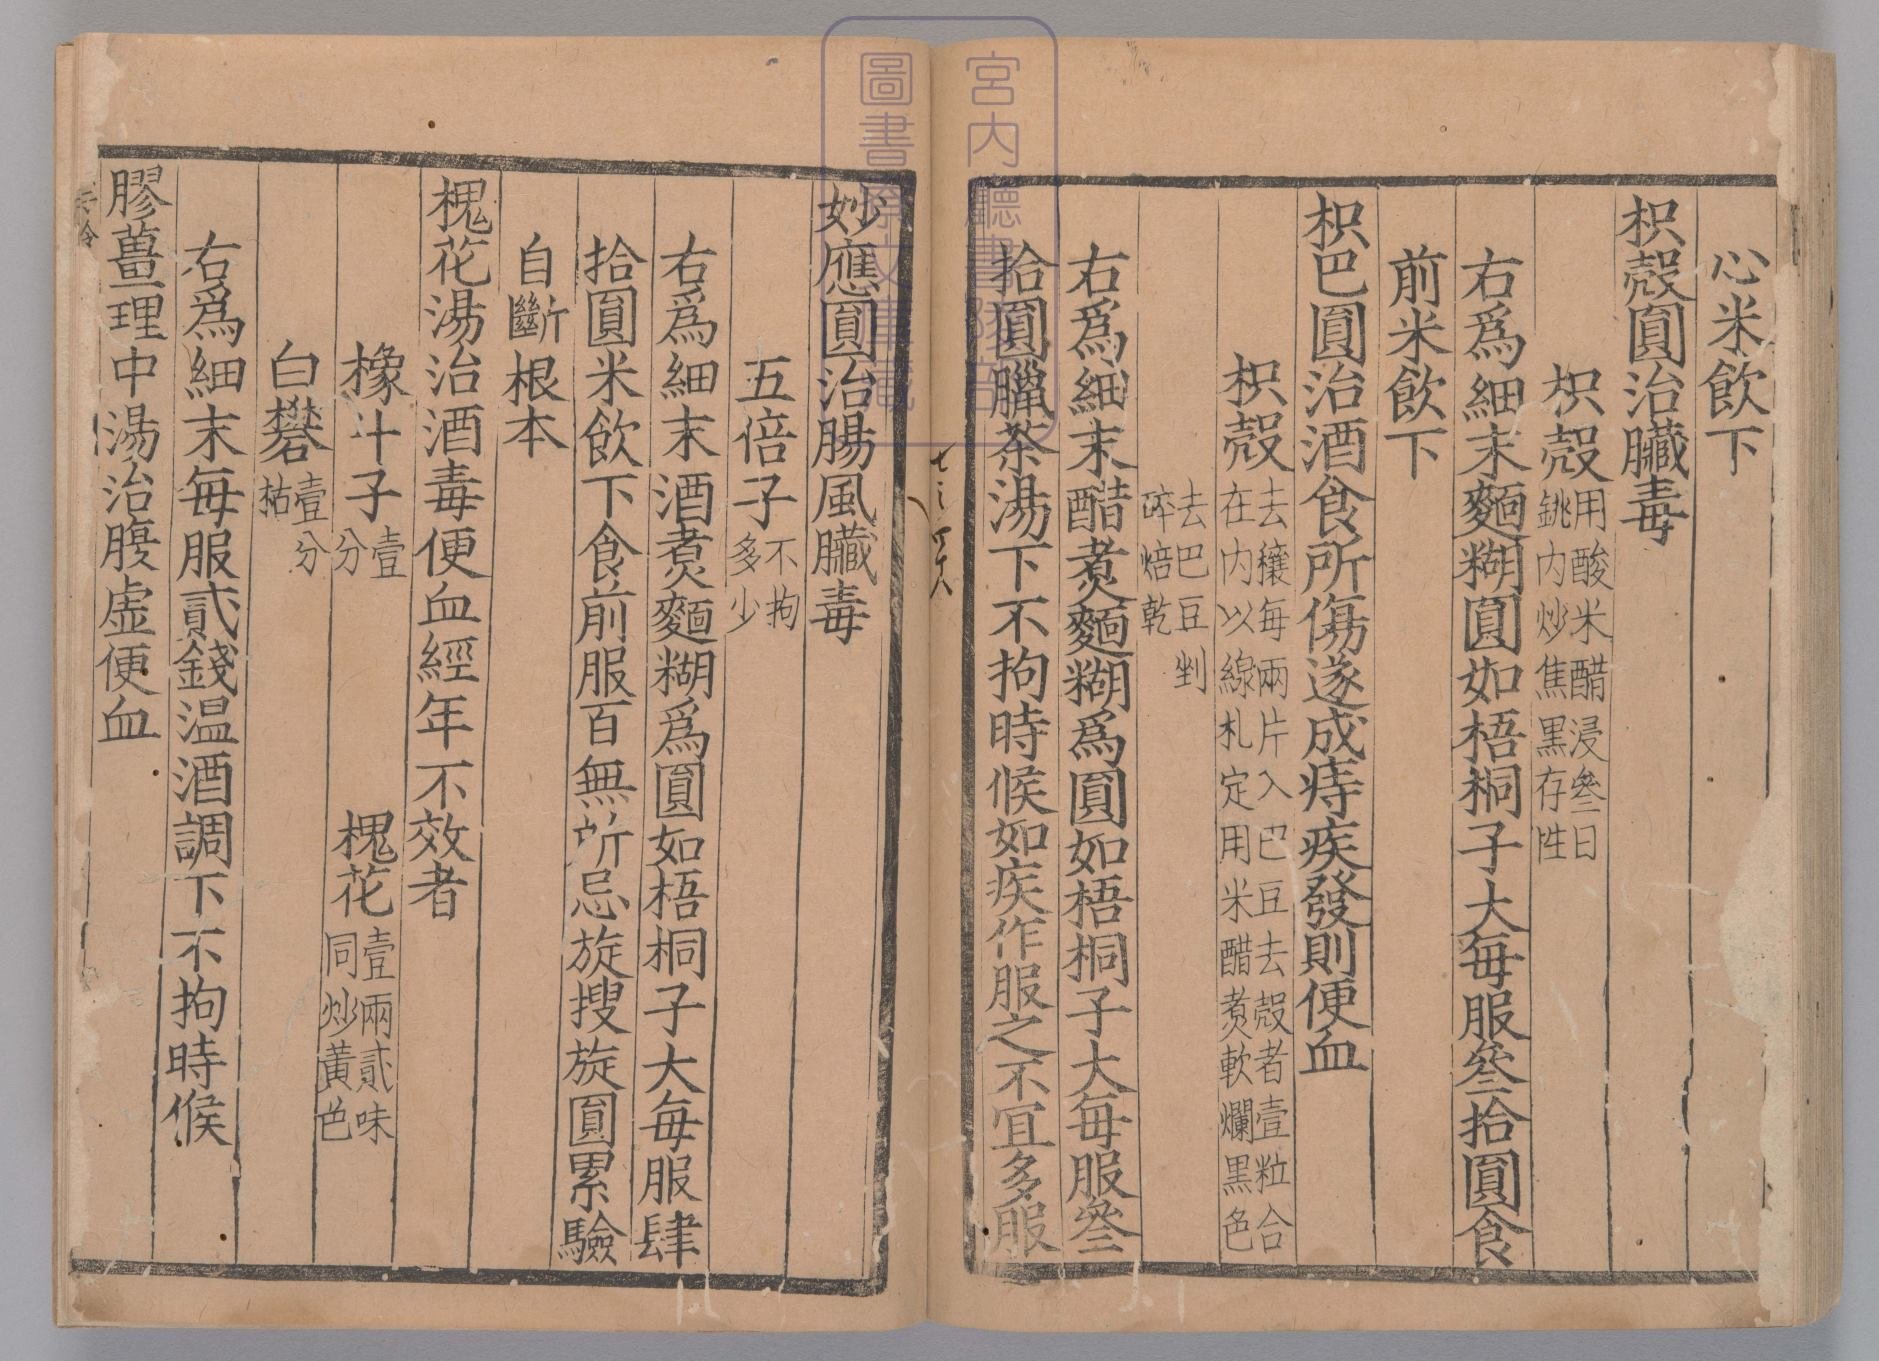 心米飲下
枳殼圓治臟毒
枳殼用酸米醋浸叄日銚内炒焦黒存性
右爲細末麵糊圓如梧桐子大每服叄拾圓食
前米飲下
枳巴圓治酒食所傷遂成痔疾發則便血
枳殼去穰每兩片入巴豆去殼者壹粒合在内以線札定用米醋煑軟爛黒色
去巴豆剉碎焙乾
右爲細末醋煑麵糊爲圓如梧桐子大每服叄
拾圓臘茶湯下不拘時候如疾作服之不宜多服
妙應圓治腸風臟毒
五倍子不拘多少
右爲細末酒煑麵糊爲圓如梧桐子大每服肆
拾圓米飲下食前服百無所忌旋搜旋圓累驗
自斷根本
槐花湯治酒毒便血經年不效者
橡斗子壹分 槐花壹兩貳味同炒黃色
白礬壹分枯
右爲細末每服貳錢温酒調下不拘時候
膠薑理中湯治腹虛便血
七之四十八
宮内廳書陵部
圖書寮文庫藏